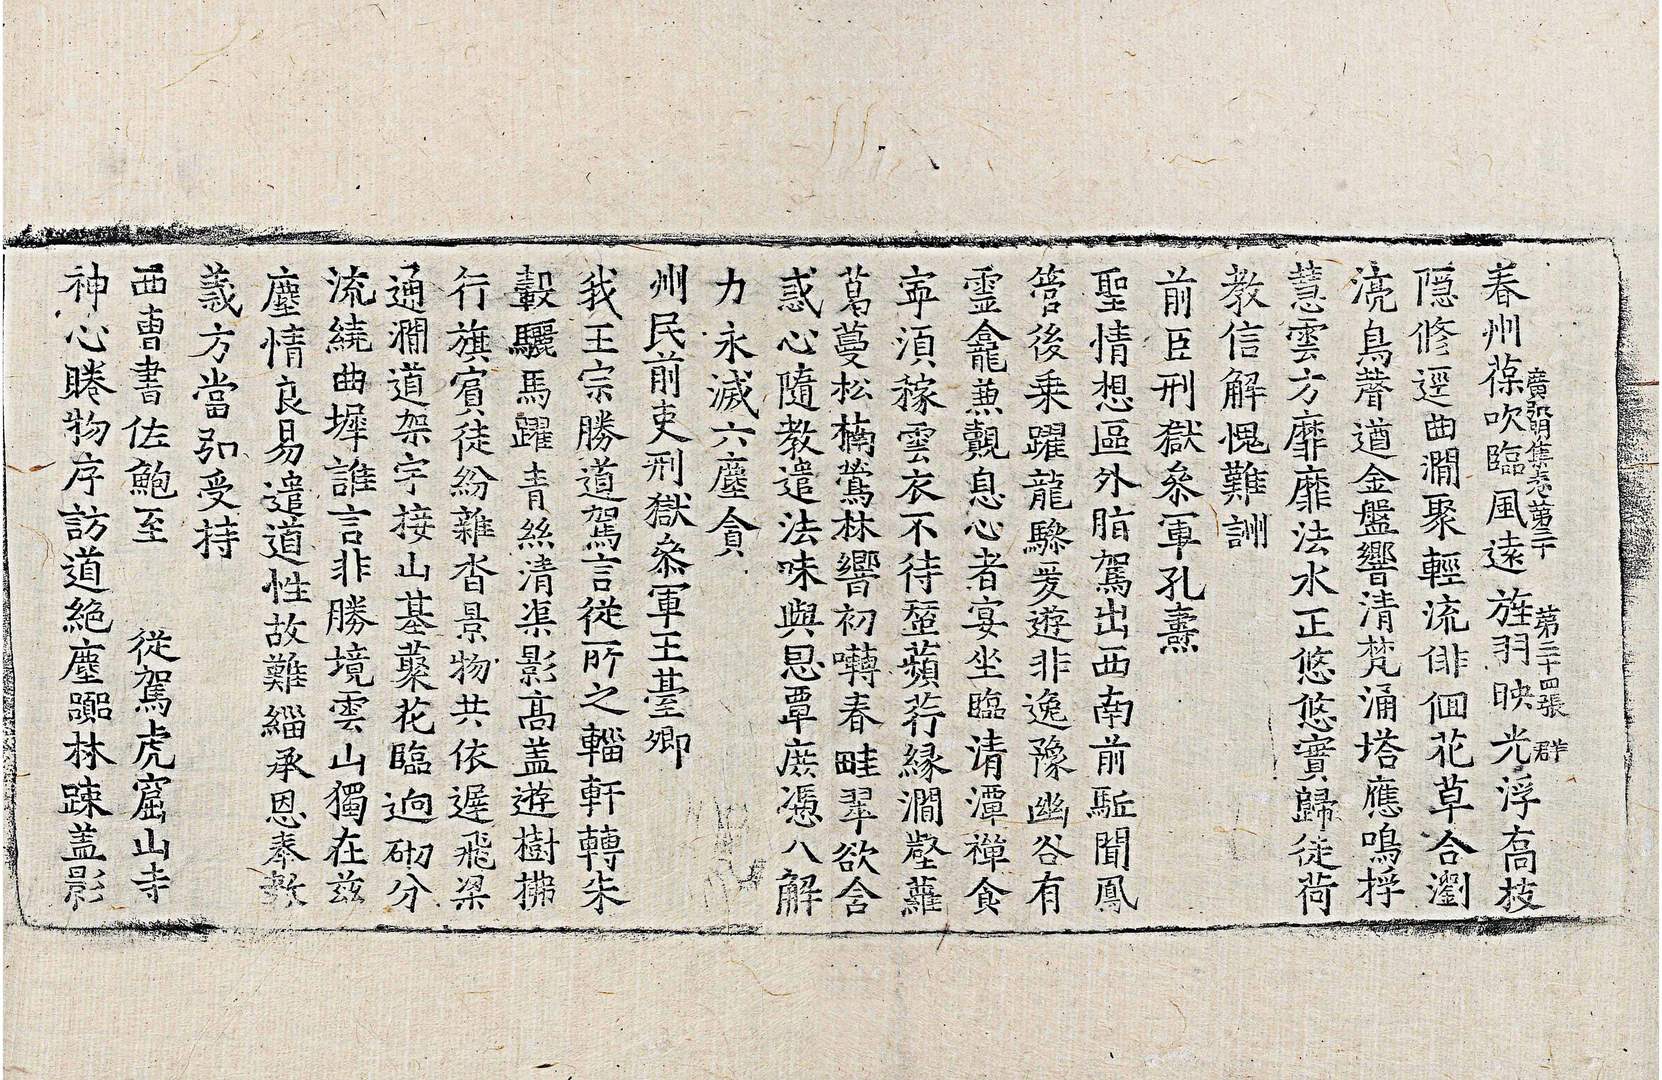 春州葆吹臨風遠旌羽映光浮喬枝
廣弘明集卷第三十　第二十四張　群
隱修逕曲澗聚輕流俳佪花草合瀏
湸鳥聲遒金盤響清梵涌塔應鳴桴
慧雲方靡靡法水正悠悠實歸徒荷
教信解愧難訓
前臣刑獄叅軍孔燾
聖情想區外脂駕出西南前駈聞鳳
管後乗躍龍驂爰遊非逸豫幽谷有
靈龕兼覿息心者宴坐臨清潭禪食
寧湏稼雲衣不待蚕蘋荇緣澗壑蘿
葛蔓松楠鶯林響初囀春畦翠欲含
惑心隨教遣法味與恩覃庻憑八解
力永滅六塵貪
州民前吏刑獄叅軍王䑓卿
我王宗勝道駕言從所之輜軒轉朱
轂驪馬躍青絲清渠影高盖遊樹拂
行旗賔徒紛雜沓景物共依遲飛梁
通澗道架宇接山基藂花臨逈砌分
流繞曲墀誰言非勝境雲山獨在茲
塵情良易遣道性故難緇承恩奉教
義方當弘受持
西曺書佐鮑至　從駕虎窟山寺
神心睠物序訪道絶塵躧林踈盖影